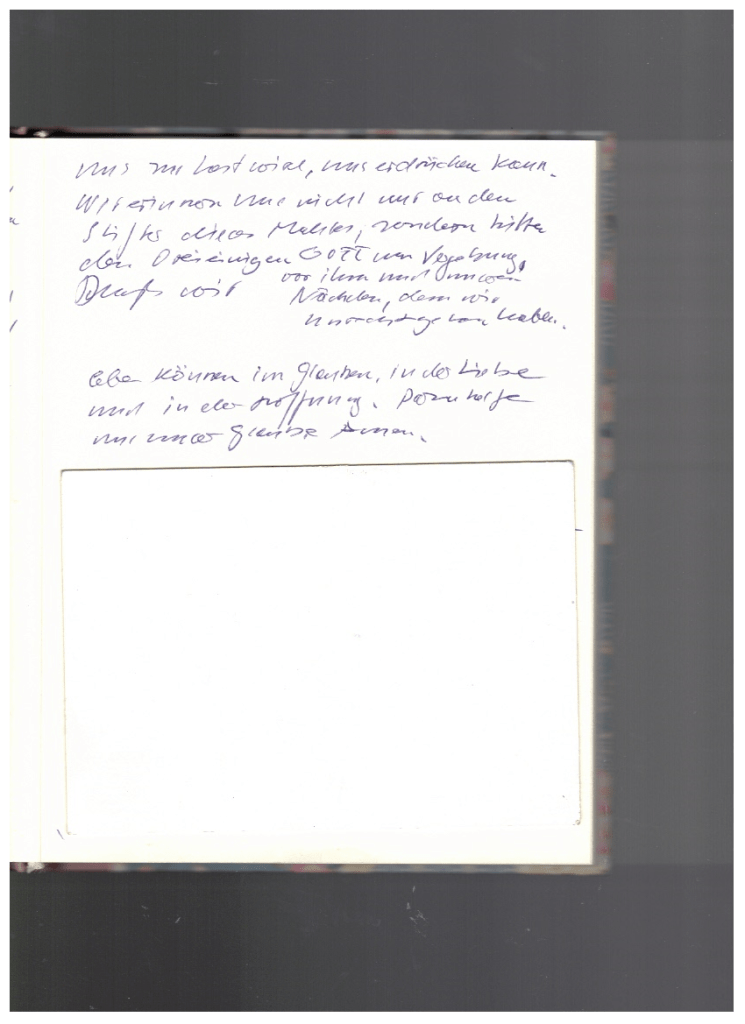 uns zur Last wird, uns erdrücken kann.
Wir erinnern uns nicht nur an den
Stifter dieses Mahles, sondern bitten
den Dreieinigen GOTT um Vergebung,
vor ihm und unseren
Damit wir
Nächsten, dem wir
haben.
leben können im Glauben, in der Liebe
und in der Hoffnung. Dazu helfe
uns unser Glaube Amen.